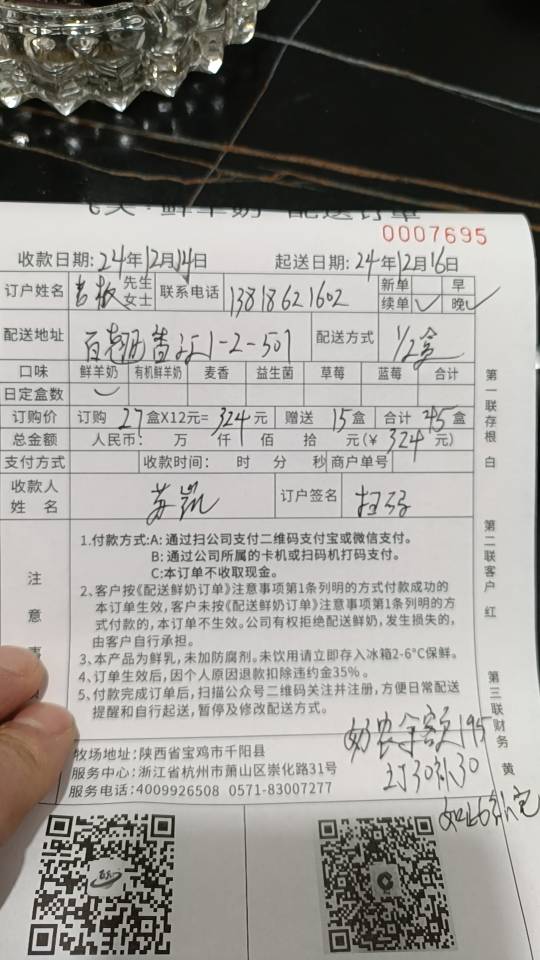 鲜羊奶 配送订单
0007695
收款日期:24年12月14日 起送日期:24年12月16日
订户姓名 先生 女士 联系电话 13818621602 新单 早
续单✓ 晚✓
配送地址 1-2-501 配送方式 1/2盒
口味 鲜羊奶 有机鲜羊奶 麦香 益生菌 草莓 蓝莓 合计
日定盒数 ✓
订购价 订购 27盒X12元=324元 赠送 15盒 合计 45盒
总金额 人民币: 万 仟 佰 拾 元(¥324元)
支付方式 收款时间: 时 分 秒 商户单号
收款人姓名 苏凯 订户签名 扫码
注意事
1.付款方式:A: 通过扫公司支付二维码支付宝或微信支付。
B: 通过公司所属的卡机或扫码机打码支付。
C:本订单不收取现金。
2、客户按《配送鲜奶订单》注意事项第1条列明的方式付款成功的
本订单生效,客户未按《配送鲜奶订单》注意事项第1条列明的方
式付款的,本订单不生效。公司有权拒绝配送鲜奶,发生损失的,
由客户自行承担。
3、本产品为鲜乳,未加防腐剂。未饮用请立即存入冰箱2-6°C保鲜。
4、订单生效后,因个人原因退款扣除违约金35%。
5、付款完成订单后,扫描公众号二维码关注并注册,方便日常配送
提醒和自行起送,暂停及修改配送方式。
余额195
订30补30
如此补完
牧场地址:陕西省宝鸡市千阳县
服务中心:浙江省杭州市萧山区崇化路31号
服务电话:4009926508 0571-83007277
第一联存根 白
第二联客户 红
第三联财务 黄